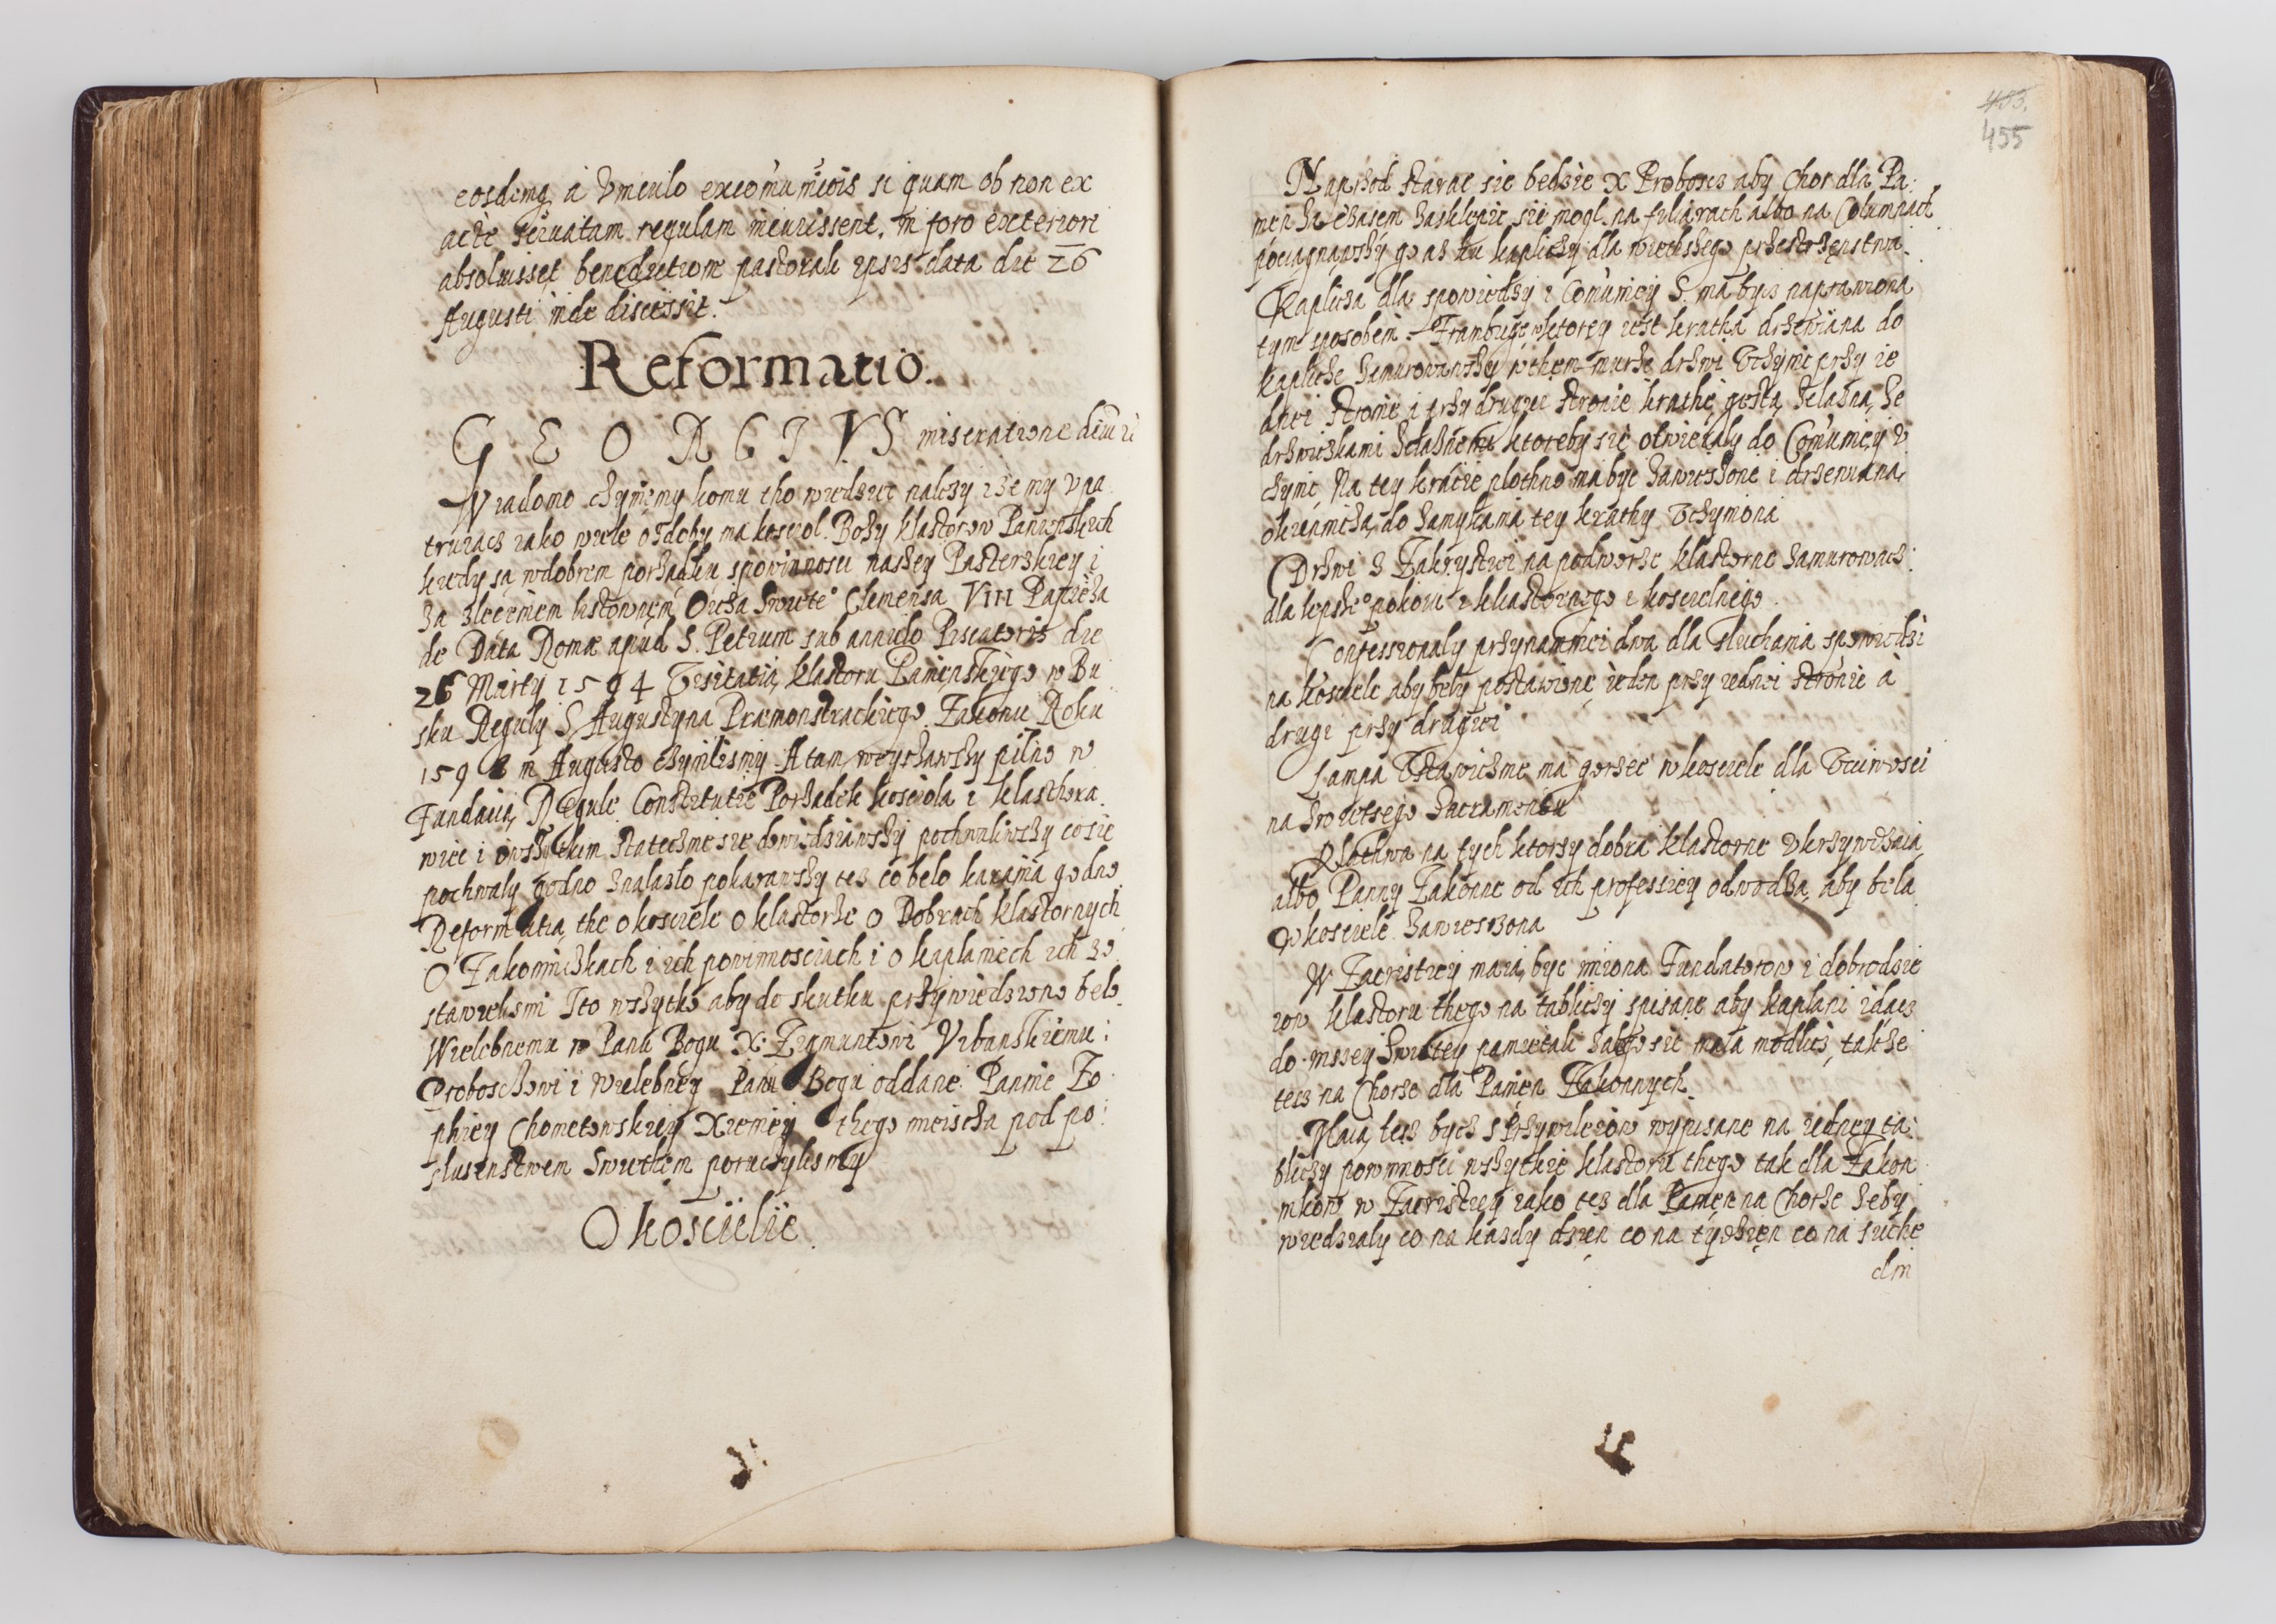 eosdemq a vinculo excom̄unicōis si quam ob non ex
acte servatam regulam incurissent, in foro exteriori
absolvisset benedictione pastorali ipsis data die 26
Augusti inde discessit.
Reformatio.
GEORGIVS miseratione divi
Wiadomo czynimy komu tho wiedziec nalezy ize my vpa
truiacz iako wiele ozdoby ma kosciol Bozy klastorow Panienskich
kiedy są wdobrem porzadku spowinnosci naszey Pasterskiey i
za zleceniem listownem Oicza Swiete° Clemensa VIII Papieża
de Data Romæ apud S. Petrum sub annulo Piscatoris die
26 Marty 1594 Visitatią klastoru Panienskiego w Bu
sku Reguly S. Augustyna Præmonstrackiego Zakonu Roku
159 in Augusto czynilismy A tam weyrzawszy pilno w
Fundacią, Regule Constitutie Porzadek kosciola i klasthora
wiec i owszytkim statecznie sie dowiedziawszy pochwaliwszy co sie
pochwaly godno znalazlo pokarawszy tez co belo karania godno
Reformatią the o kosciele o klastorze o Dobrach klastornych
O Zakonniczkach i ich powinnosciach i o kaplaniech ich zo
stawielismi Ito wszytko aby do skutku przywiedziono belo
Wielebnemu w Panu Bogu X. Zigmuntowi Vrbanskiemu
Proboszczowi i wielebney Panu Bogu oddanei Pannie Zo
phiey Chometowskiey Xieniey thego mieiscza pod po:
slusenstwem Swiethem poruczylismy
O kościelie.
483.
455
Naprzod starac sie bedzie X Proboscz aby Chor dla Pa:
nien za czasem zasklepic sie mogl na filiarach albo na Columnach
pociagnawszy go az ku kapliczy dla wietszego przestrzenstwa.
Kaplicza dla spowiedzy i Com̄uniey S. ma bycz naprawiona
tym sposobem Frambugę wktorey iest kratha drzewiana do
kaplicze zamurowawszy wthem murze drzwi vczynic przy ie
dnei stronie i przy drugiei stronie krathę gęstą zelazną ze
drzwiczkami zelaznemi ktoreby się otwieraly do Com̄uniey v
czynic. Na tey kracie plothno ma byc zawieszone i drzewiana
okiennicza do zamykania tey krathy vczyniona
Drzwi z Zakrystiei na podworze klastorne zamurowacz
dla lepsze° pokoiu i klastornego i koscielnego.
Confessionaly przynamniei dwa dla sluchania spowiedzi
na kosciele aby bely postawione ieden przy iednei stronie a
drugi przy drugiei
Lampa vstawicznie ma gorzec w kosciele dla vcciwosci
na swietsego Sacramentu
Klathwa na tych ktorzy dobra klastorne vkrzywdzaia
albo Panny Zakonne od ich professiey odwodza, aby bela
w kosciele zawieszona
W Zacristiey maią byc imiona Fundatorow i dobrodzie
iow klastoru thego na tabliczy spisane aby kaplani idacz
do mssey Swietey pamietali za kogo sie maia modlicz, takze
tecz na Chorze dla Panien Zakonnych.
Maią tecz bycz s Przywileiow wypisane na iedney ta:
bliczy powinnosci wszytkie klastoru thego tak dla Zakon
nikow w Zacristiey iako tez dla Panien na Chorze zeby
wiedzialy co na kazdy dzien co na tydzien co na suche
dni